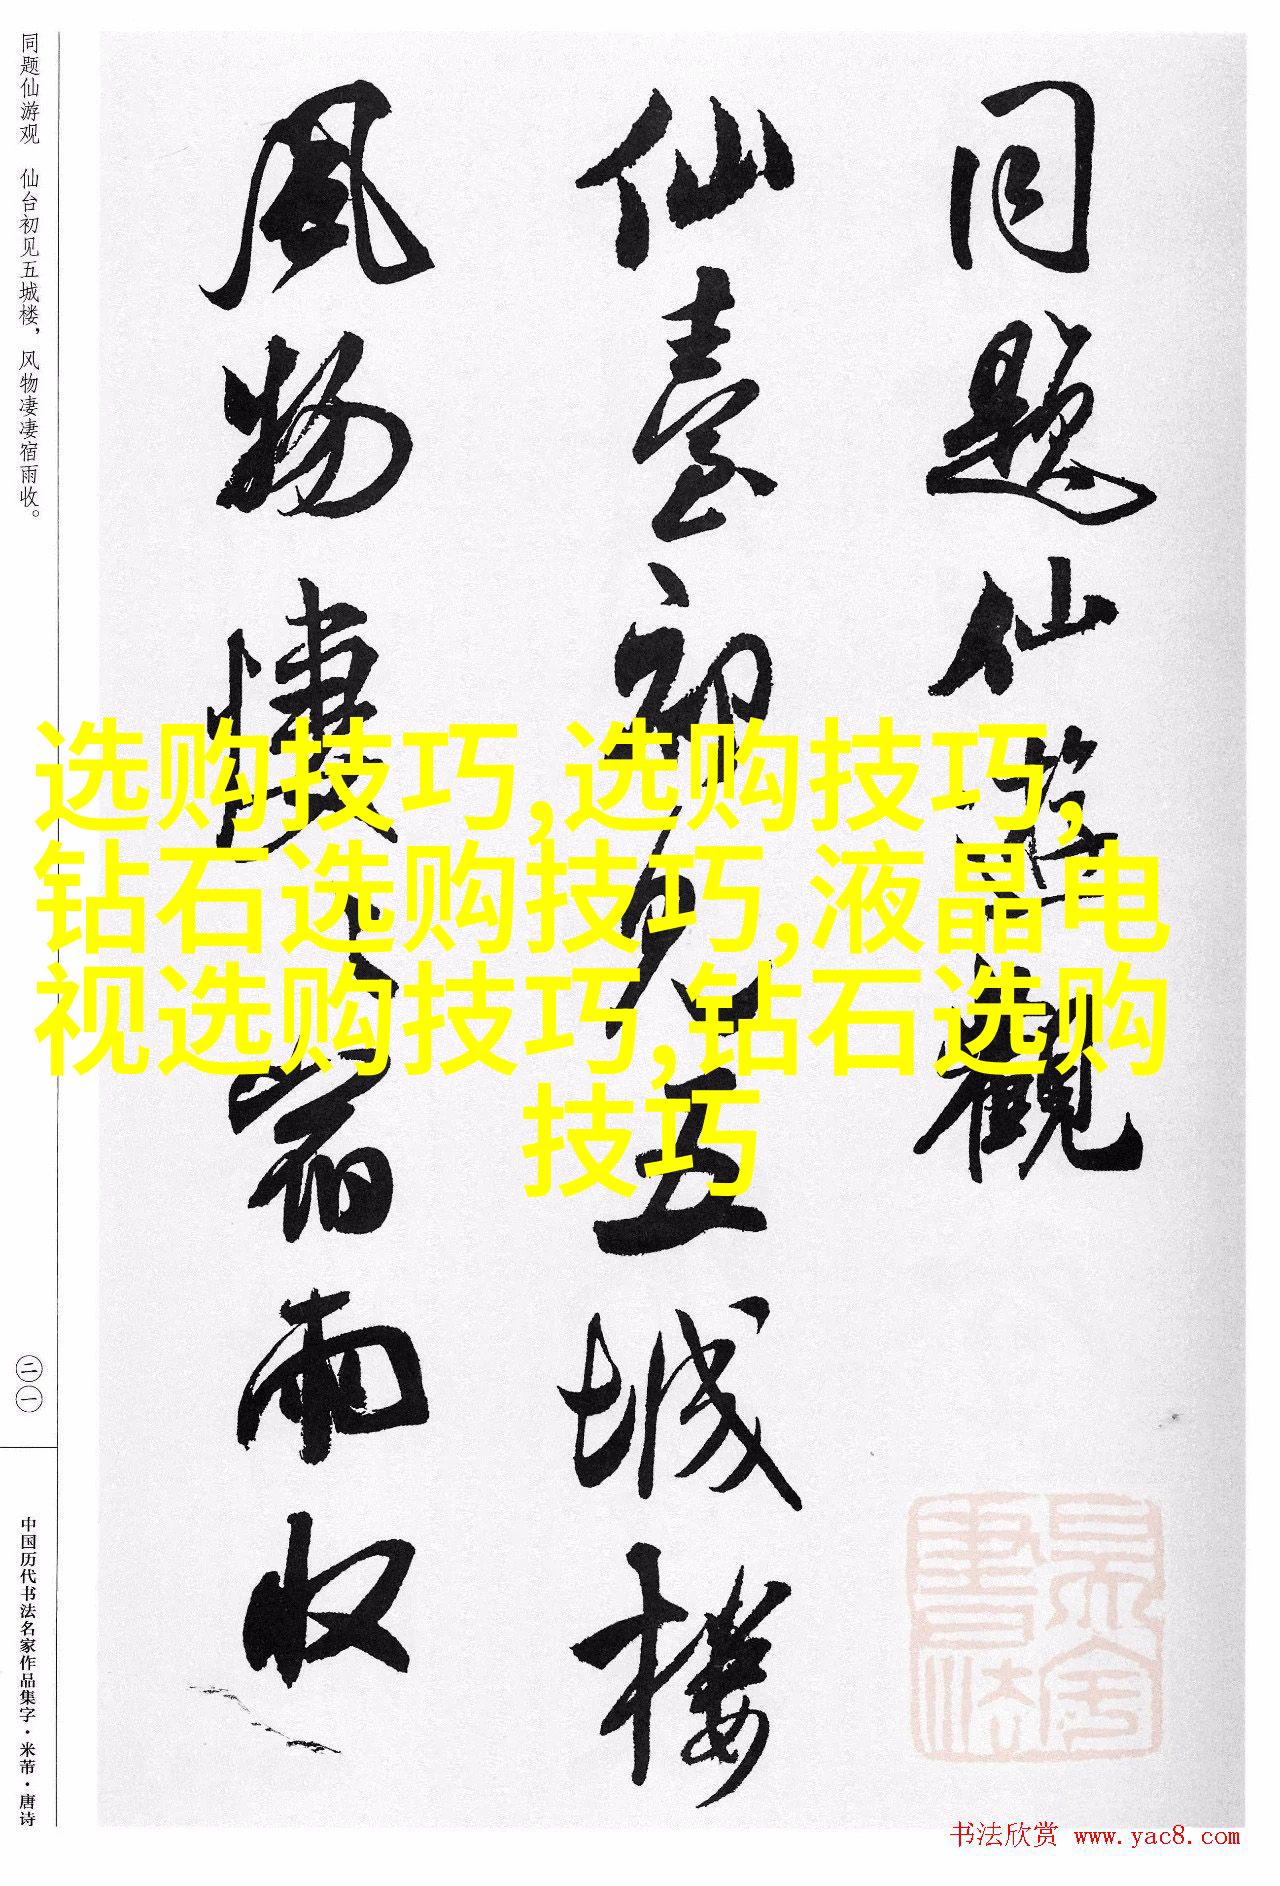 同题仙游观 仙台初见五城楼，风物凄凄宿雨收。
二一
中国历代书法名家作品集字·米芾·唐诗
同题仙游觀
仙臺初见五城楼
风物悽〻宿雨收
选购技巧,选购技巧,
钻石选购技巧,液晶电
视选购技巧,钻石选购
技巧
书法欣赏 www.yac8.com